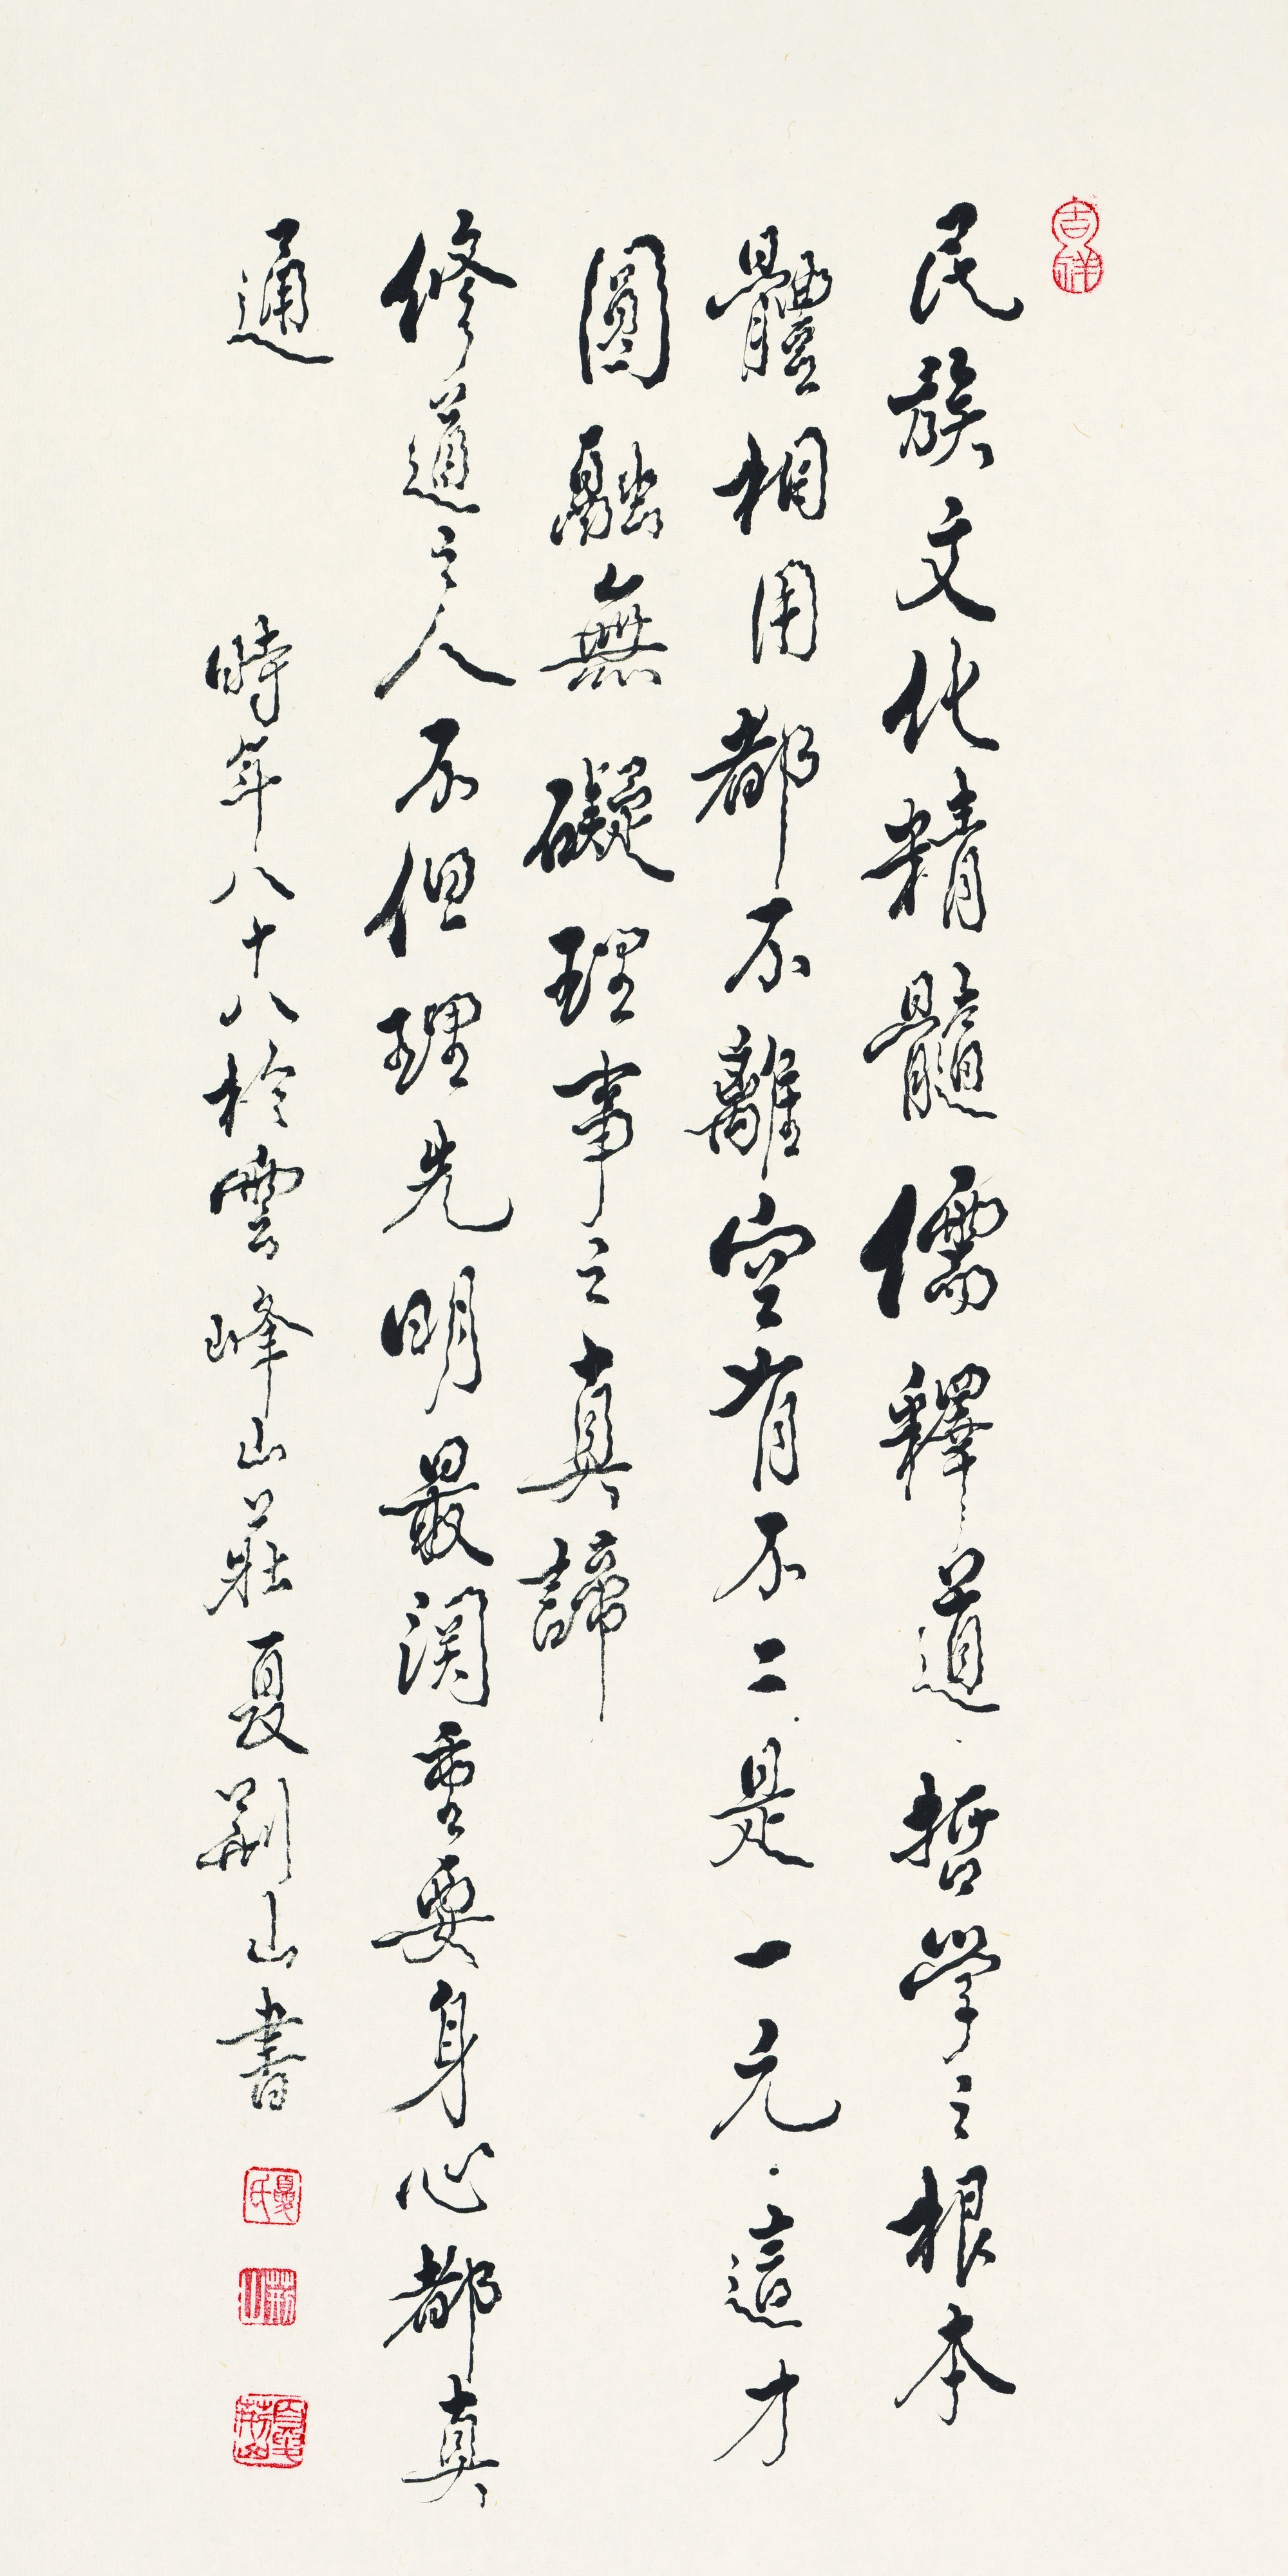 吉祥
民族文化精髓儒釋道哲學之根本
體相用都不離空有不二是一元這才
圓融無礙理事之真諦
修道之人不但理先明最関重要身心都真
通
時年八十八於雲峰山莊夏荆山書
夏氏
荆山
夏荆山